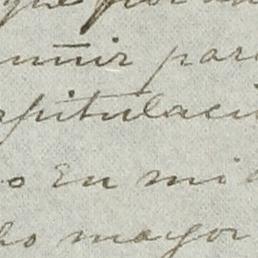 que por
unir para
apitulaci
o en mi
ho mayor